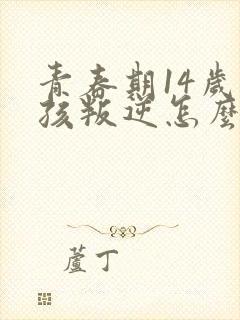 青春期14歲
孩叛逆怎麼
蘆丁